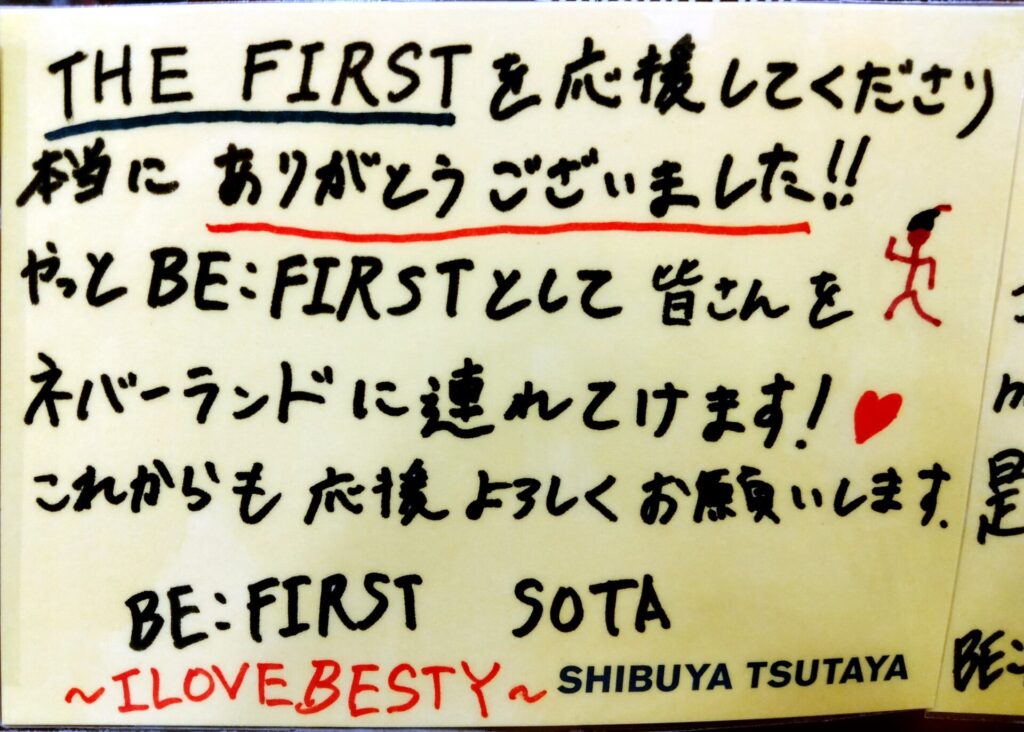 THE FIRSTを応援してくださり
本当に ありがとうございました!!
やっとBE:FIRSTとして 皆さんを
ネバーランドに連れてけます!
これからも 応援 よろしく お願いします.
BE:FIRST SOTA
~I LOVE BESTY~
SHIBUYA TSUTAYA
是
BE: